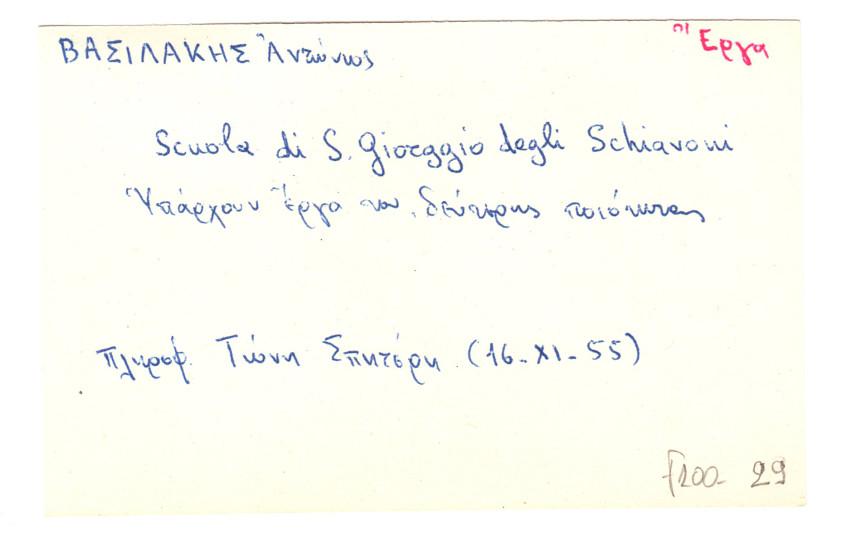 ΒΑΣΙΛΑΚΗΣ Ἀντώνιος
Ἔργα
Scuola di S. Giorggio degli Schiavoni
Ὑπάρχουν ἔργα του, δεύτερης ποιότητας
Πληροφ. Τώνη Σπητέρη (16-XI-55)
F200- 29